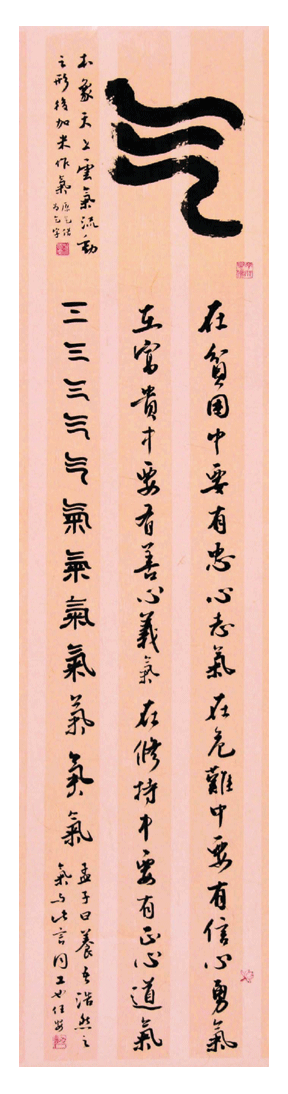 气
本象天上雲氣流動
之形後加米作氣
原气借
为乞字
在貧困中要有忠心志氣在危難中要有信心勇氣
在富貴中要有善心義氣在修持中要有正心道氣
气气气气气氣氣氣氣氣氣氣
孟子曰養吾浩然之
氣与此言同工也任